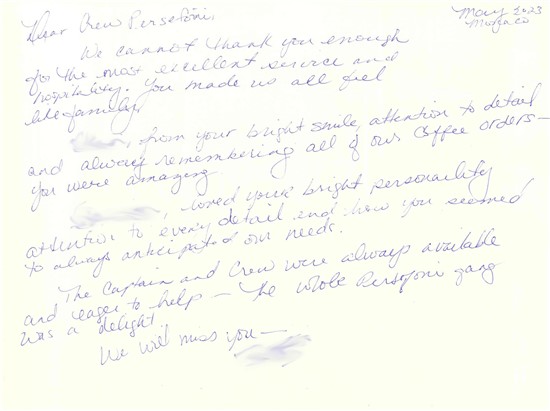 May 2023
Monaco
Dear Crew Persefoni,
We cannot thank you enough
for the most excellent service and
hospitality. You made us all feel
like family.
, from your bright smile, attention to detail
and always remembering all of our coffee orders—
you were amazing.
, loved your bright personality
attention to every detail and how you seemed
to always anticipated our needs.
The Captain and Crew were always available
and eager to help — The whole Persefoni gang
was a delight.
We will miss you —